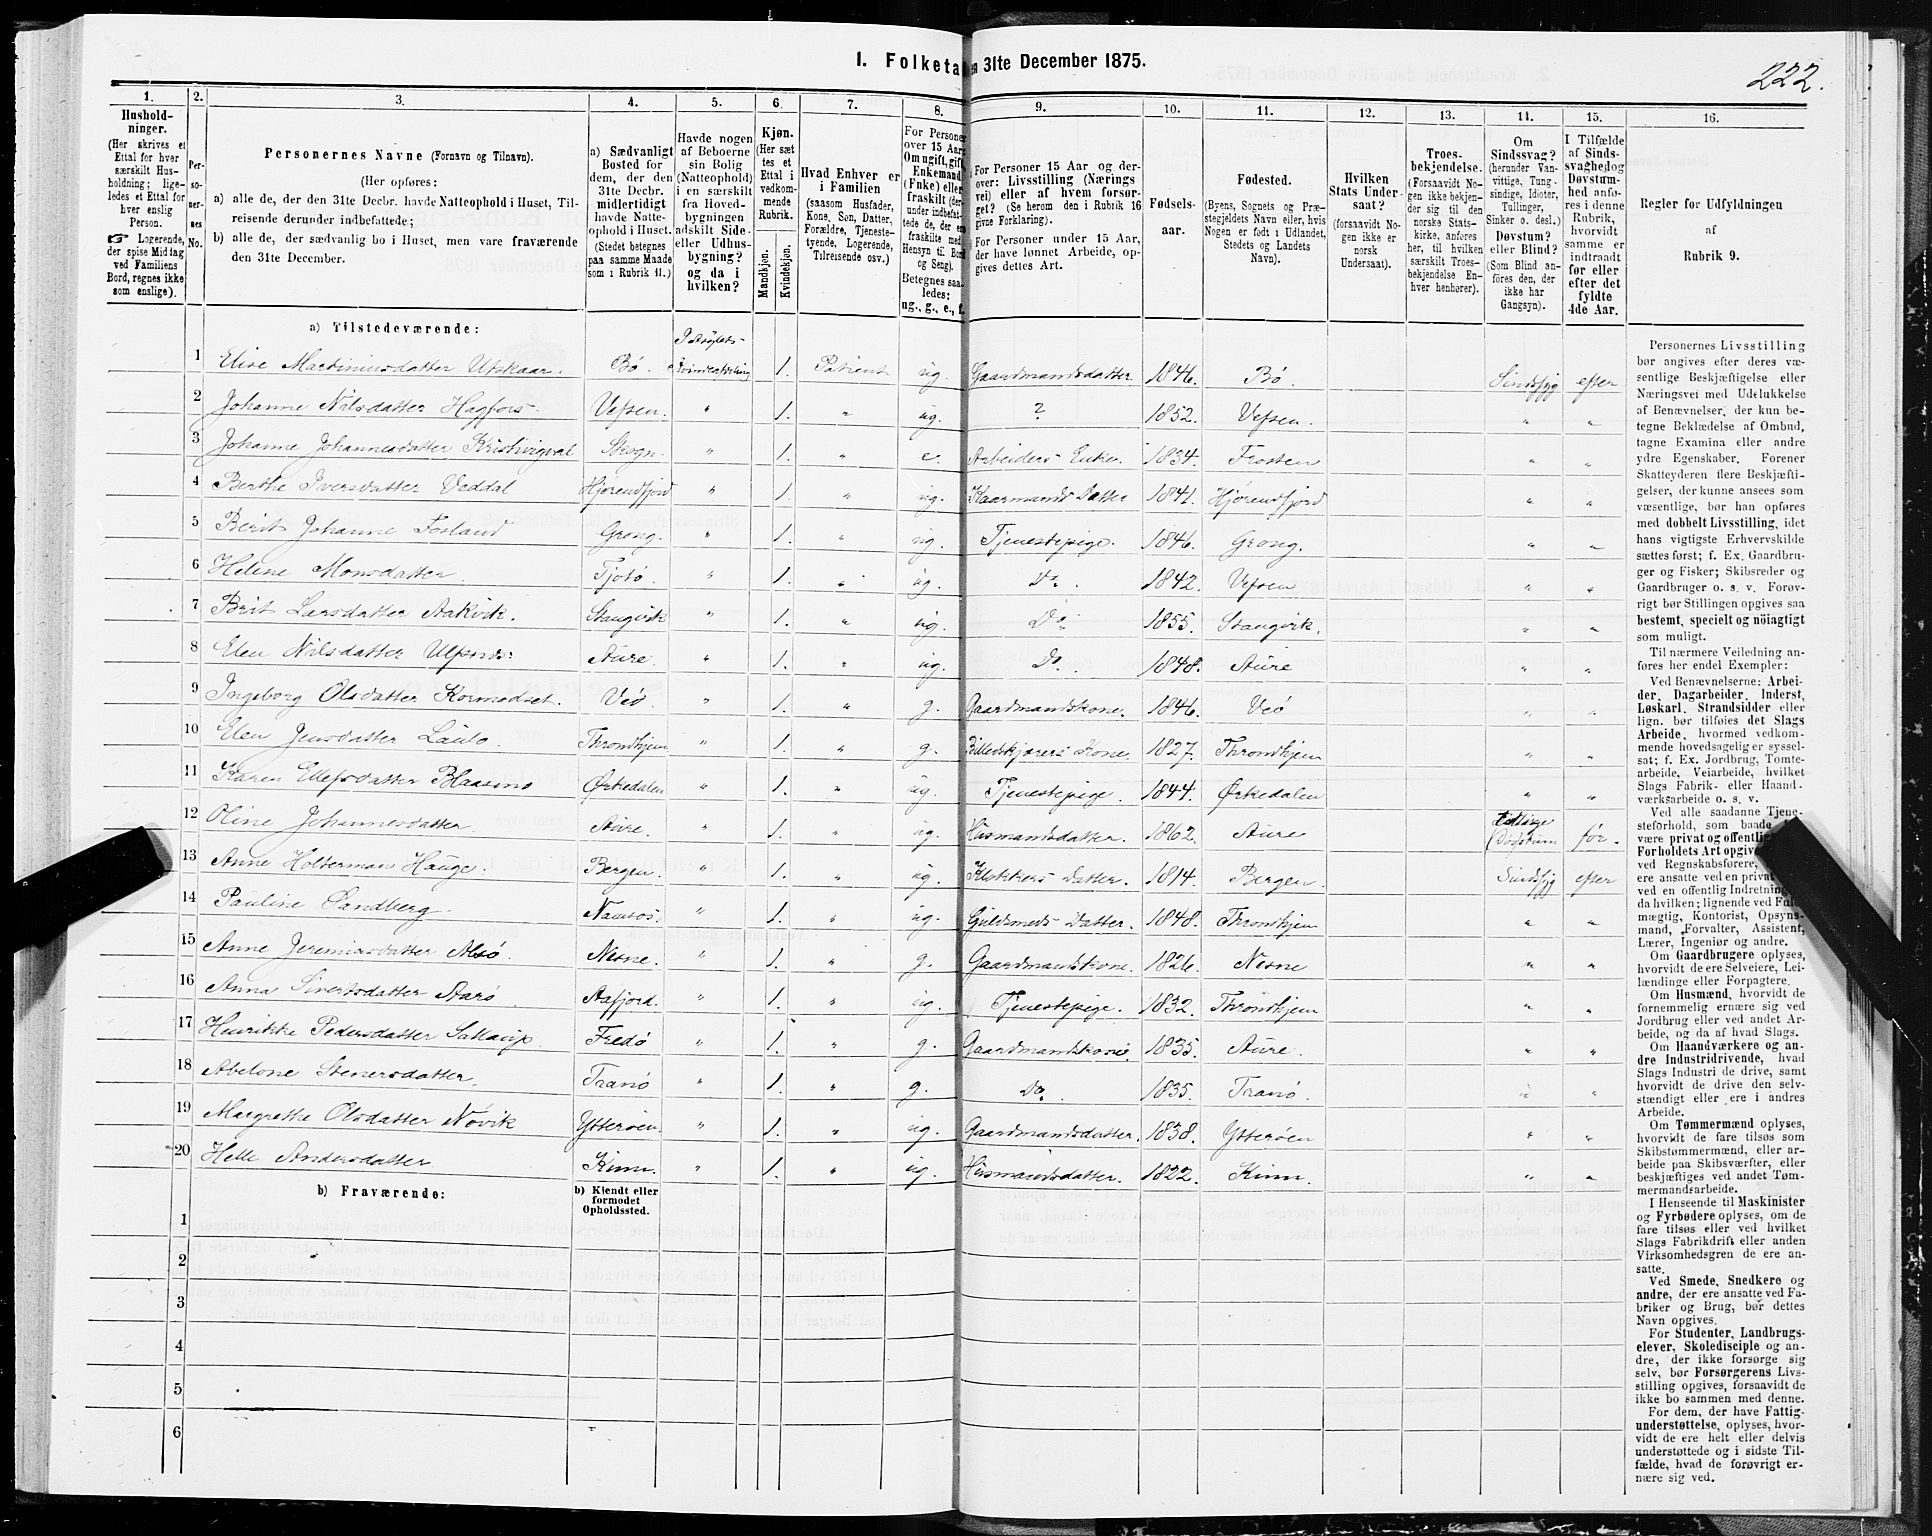 222.
1. Folketa
en 31te December 1875.
1. 2. 3. 4. 5. 6. 7. 8. 9. 10. 11. 12. 13. 14. 15. 16.
Hushold-
ninger.
(Her skrives et
Ettal for hver
særskilt Hus-
holdning; lige-
ledes et Ettal for
hver enslig
Person.
☞ Logerende,
der spise Middag
ved Familiens
Bord, regnes ikke
som enslige).
Per-
so-
ner-
nes
No.
Personernes Navne (Fornavn og Tilnavn).
(Her opføres:
a) alle de, der den 31te Decbr. havde Natteophold i Huset, Til-
reisende derunder indbefattede;
b) alle de, der sædvanlig bo i Huset, men vare fraværende
den 31te December.
a) Sædvanligt
Bosted for
dem, der den
31te Decbr.
midlertidigt
havde Natte-
ophold i Huset.
(Stedet betegnes
paa samme Maade
som i Rubrik 11.)
Havde nogen
af Beboerne
sin Bolig
(Natteophold)
i en særskilt
fra Hoved-
bygningen
adskilt Side-
eller Udhus-
bygning?
og da i
hvilken?
Kjøn.
(Her sæt-
tes et
Ettal i
vedkom-
mende
Rubrik.
Mandkjøn.
Kvindekjøn.
Hvad Enhver er
i Familien
(saasom Husfader,
Kone, Søn, Datter,
Forældre, Tjeneste-
tyende, Logerende,
Tilreisende osv.)
For Personer
over 15 Aar:
Om ugift, gift,
Enkemand
(Enke) eller
fraskilt (der-
under indbefat-
tede de, der ere
fraskilte med
Hensyn til Bord
og Seng).
Betegnes saa-
ledes:
ug., g., e., f.
For Personer 15 Aar og der-
over: Livsstilling (Nærings
vei) eller af hvem forsør-
get? (Se herom den i Rubrik 16
givne Forklaring).
For Personer under 15 Aar,
der have lønnet Arbeide, op-
gives dettes Art.
Fødsels-
aar.
Fødested.
(Byens, Sognets og Præ-
stegjeldets Navn eller, hvis
Nogen er født i Udlandet,
Stedets og Landets
Navn).
Hvilken
Stats Under-
saat?
(forsaavidt No-
gen ikke er
norsk
Undersaat).
Troes-
bekjendelse.
(Forsaavidt No-
gen ikke bekjen-
der sig til den
norske Stats-
kirke, anføres
her, til hvilken
særskilt Troes-
bekjendelse En-
hver henhører).
Om
Sindssvag?
(herunder Van-
vittige, Tung-
sindige, Idioter,
Tullinger,
Sinker o. desl.)
Døvstum?
eller Blind?
(Som Blind an-
føres den, der
ikke har
Gangsyn).
I Tilfælde
af Sinds-
svaghed og
Døvstum-
hed anfø-
res i denne
Rubrik,
hvorvidt
samme er
indtraadt
før eller
efter det
fyldte
4de Aar.
Regler for Udfyldningen
af
Rubrik 9.
a) Tilstedeværende:
1 Elise Martiniusdatter Utskaar. Bø. 1. Patient ug. Gaardmandsdatter 1846. Bø. Sindssyg efter
2 Johanne Nilsdatter Hagfors. Vefsen. " 1. " ug. ? 1852. Vefsen. " "
3 Johanne Johannesdatter Skogn. " 1. " e. Arbeiders Enke. 1834. Frosten " "
4 Berthe Iversdatter Veddal Hjørendfjord " 1. " ug. Gaarmands Datter 1841. Hjørendfjord " "
5 Berit Johanne Fosland Grong. " 1. " ug. Tjenestepige. 1846. Grong. " "
6 Helene Monsdatter. Tjøtø. " 1. " ug. Do. 1842. Vefsen " "
7 Brit Larsdatter Aakvik. Stangvik " 1. " ug. Do. 1855. Stangvik. " "
8 Elen Nilsdatter Aure. " 1. " ug. Do. 1848. Aure " "
9 Ingeborg Olsdatter Kormodset. Veø. " 1. " g. Gaardmandskone. 1846. Veø " "
10 Elen Jensdatter Laulo. Throndhjem " 1. " g. Billedskjærers Kone. 1827. Throndhjem " "
11 Karen Ellefsdatter Blaasmo Ørkedalen " 1. " ug. Tjenestepige. 1844. Ørkedalen " "
12 Oline Johannesdatter. Aure. " 1. " ug. Husmandsdatter. 1862. Aure (Døfstum før.
13 Anne Holterman Hauge. Bergen. " 1. " ug. Klokkers Datter. 1814. Bergen. Sindssyg efter
14 Pauline Sandberg. Namsos. " 1. " ug. Guldsmeds Datter. 1848. Throndhjem " "
15 Anne Jeremiasdatter Alsø. Nesne. " 1. " g. Gaardmandskone. 1826. Nesne " "
16 Anna Sivertsdatter Aarø. Aafjord. " 1. " ug. Tjenestepige. 1832. Throndhjem " "
17 Henrikke Pedersdatter Fredø " 1. " g. Gaardmandskone. 1835. Aure. " "
18 Abelone Stenersdatter. Tranø " 1. " g. Do. 1835. Tranø. " "
19 Margrethe Olsdatter Nøvik Ytterøen. " 1. " ug. Gaardmandsdatter. 1838. Ytterøen " "
20 Helle Andersdatter Kinn. " 1. " ug. Husmandsdatter. 1822. Kinn. " "
b) Fraværende:
b) Kjendt eller
formodet
Opholdssted.
1
2
3
4
5
6
Personernes Livsstilling
bør angives efter deres væ-
sentlige Beskjæftigelse eller
Næringsvei med Udelukkelse
af Benævnelser, der kun be-
tegne Beklædelse af Ombud,
tagne Examina eller andre
ydre Egenskaber. Forener
Skatteyderen flere Beskjæfti-
gelser, der kunne ansees som
væsentlige, bør han opføres
med dobbelt Livsstilling, idet
hans vigtigste Erhvervskilde
sættes først; f. Ex. Gaardbru-
ger og Fisker; Skibsreder og
Gaardbruger o. s. v. Forøv-
rigt bør Stillingen opgives saa
bestemt, specielt og nöiagtigt
som muligt.
Til nærmere Veiledning an-
føres her endel Exempler:
Ved Benævnelserne: Arbei-
der, Dagarbeider, Inderst,
Løskarl, Strandsidder eller
lign. bør tilføies det Slags
Arbeide, hvormed vedkom-
mende hovedsagelig er syssel-
sat; f. Ex. Jordbrug, Tomte-
arbeide, Veiarbeide, hvilket
Slags Fabrik- eller Haand-
værksarbeide o. s. v.
Ved alle saadanne Tjene-
steforhold, som baade
være privat og offentlig
Forholdets Art opgives
ved Regnskabsførere,
ere ansatte ved en privat
ved en offentlig Indretning
da hvilken; lignende ved Fuld-
mægtig, Kontorist, Opsyns-
mand, Forvalter, Assistent,
Lærer, Ingeniør og andre.
Om Gaardbrugere oplyses,
hvorvidt de ere Selveiere, Lei-
lændinge eller Forpagtere.
Om Husmænd, hvorvidt de
fornemmelig ernære sig ved
Jordbrug eller ved andet Ar-
beide, og da af hvad Slags.
Om Haandværkere og an-
dre Industridrivende, hvad
Slags Industri de drive, samt
hvorvidt de drive den selv-
stændigt eller ere i andres
Arbeide.
Om Tømmermænd oplyses,
hvorvidt de fare tilsøs som
Skibstømmermænd, eller ar-
beide paa Skibsværfter, eller
beskjæftiges ved andet Tøm-
mermandsarbeide.
I Henseende til Maskinister
og Fyrbødere oplyses, om de
fare tilsøs eller ved hvilket
Slags Fabrikdrift eller anden
Virksomhedsgren de ere an-
satte.
Ved Smede, Snedkere og
andre, der ere ansatte ved Fa-
briker og Brug, bør dettes
Navn opgives.
For Studenter, Landbrugs-
elever, Skoledisciple og an-
dre, der ikke forsørge sig
selv, bør Forsørgerens Livs-
stilling opgives, forsaavidt de
ikke bo sammen med denne.
For dem, der have Fattig-
understøttelse, oplyses, hvor-
vidt de ere helt eller delvis
understøttede og i sidste Til-
fælde, hvad de forøvrigt er-
nære sig ved.